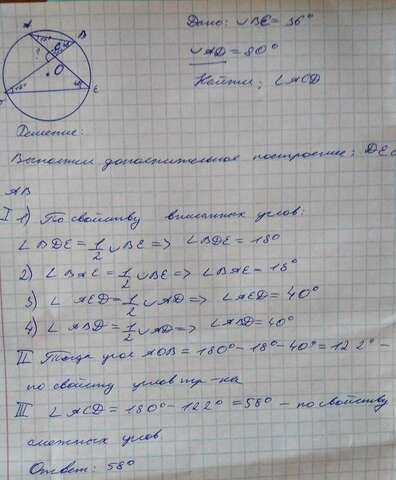 Дано: ∪BE = 36°
∪AD = 80°
Найти: ∠ACD
A
B
C
O
E
Решение:
Выполним дополнительное построение: DE и
AB
I 1) По свойству вписанных углов:
∠BDE = 1/2 ∪BE => ∠BDE = 18°
2) ∠BAE = 1/2 ∪BE => ∠BAE = 18°
3) ∠AED = 1/2 ∪AD => ∠AED = 40°
4) ∠ABD = 1/2 ∪AD => ∠ABD = 40°
II Тогда угол AOB = 180° - 18° - 40° = 122° -
по свойству углов тр-ка
III ∠ACD = 180° - 122° = 58° - по свойству
смежных углов
Ответ: 58°